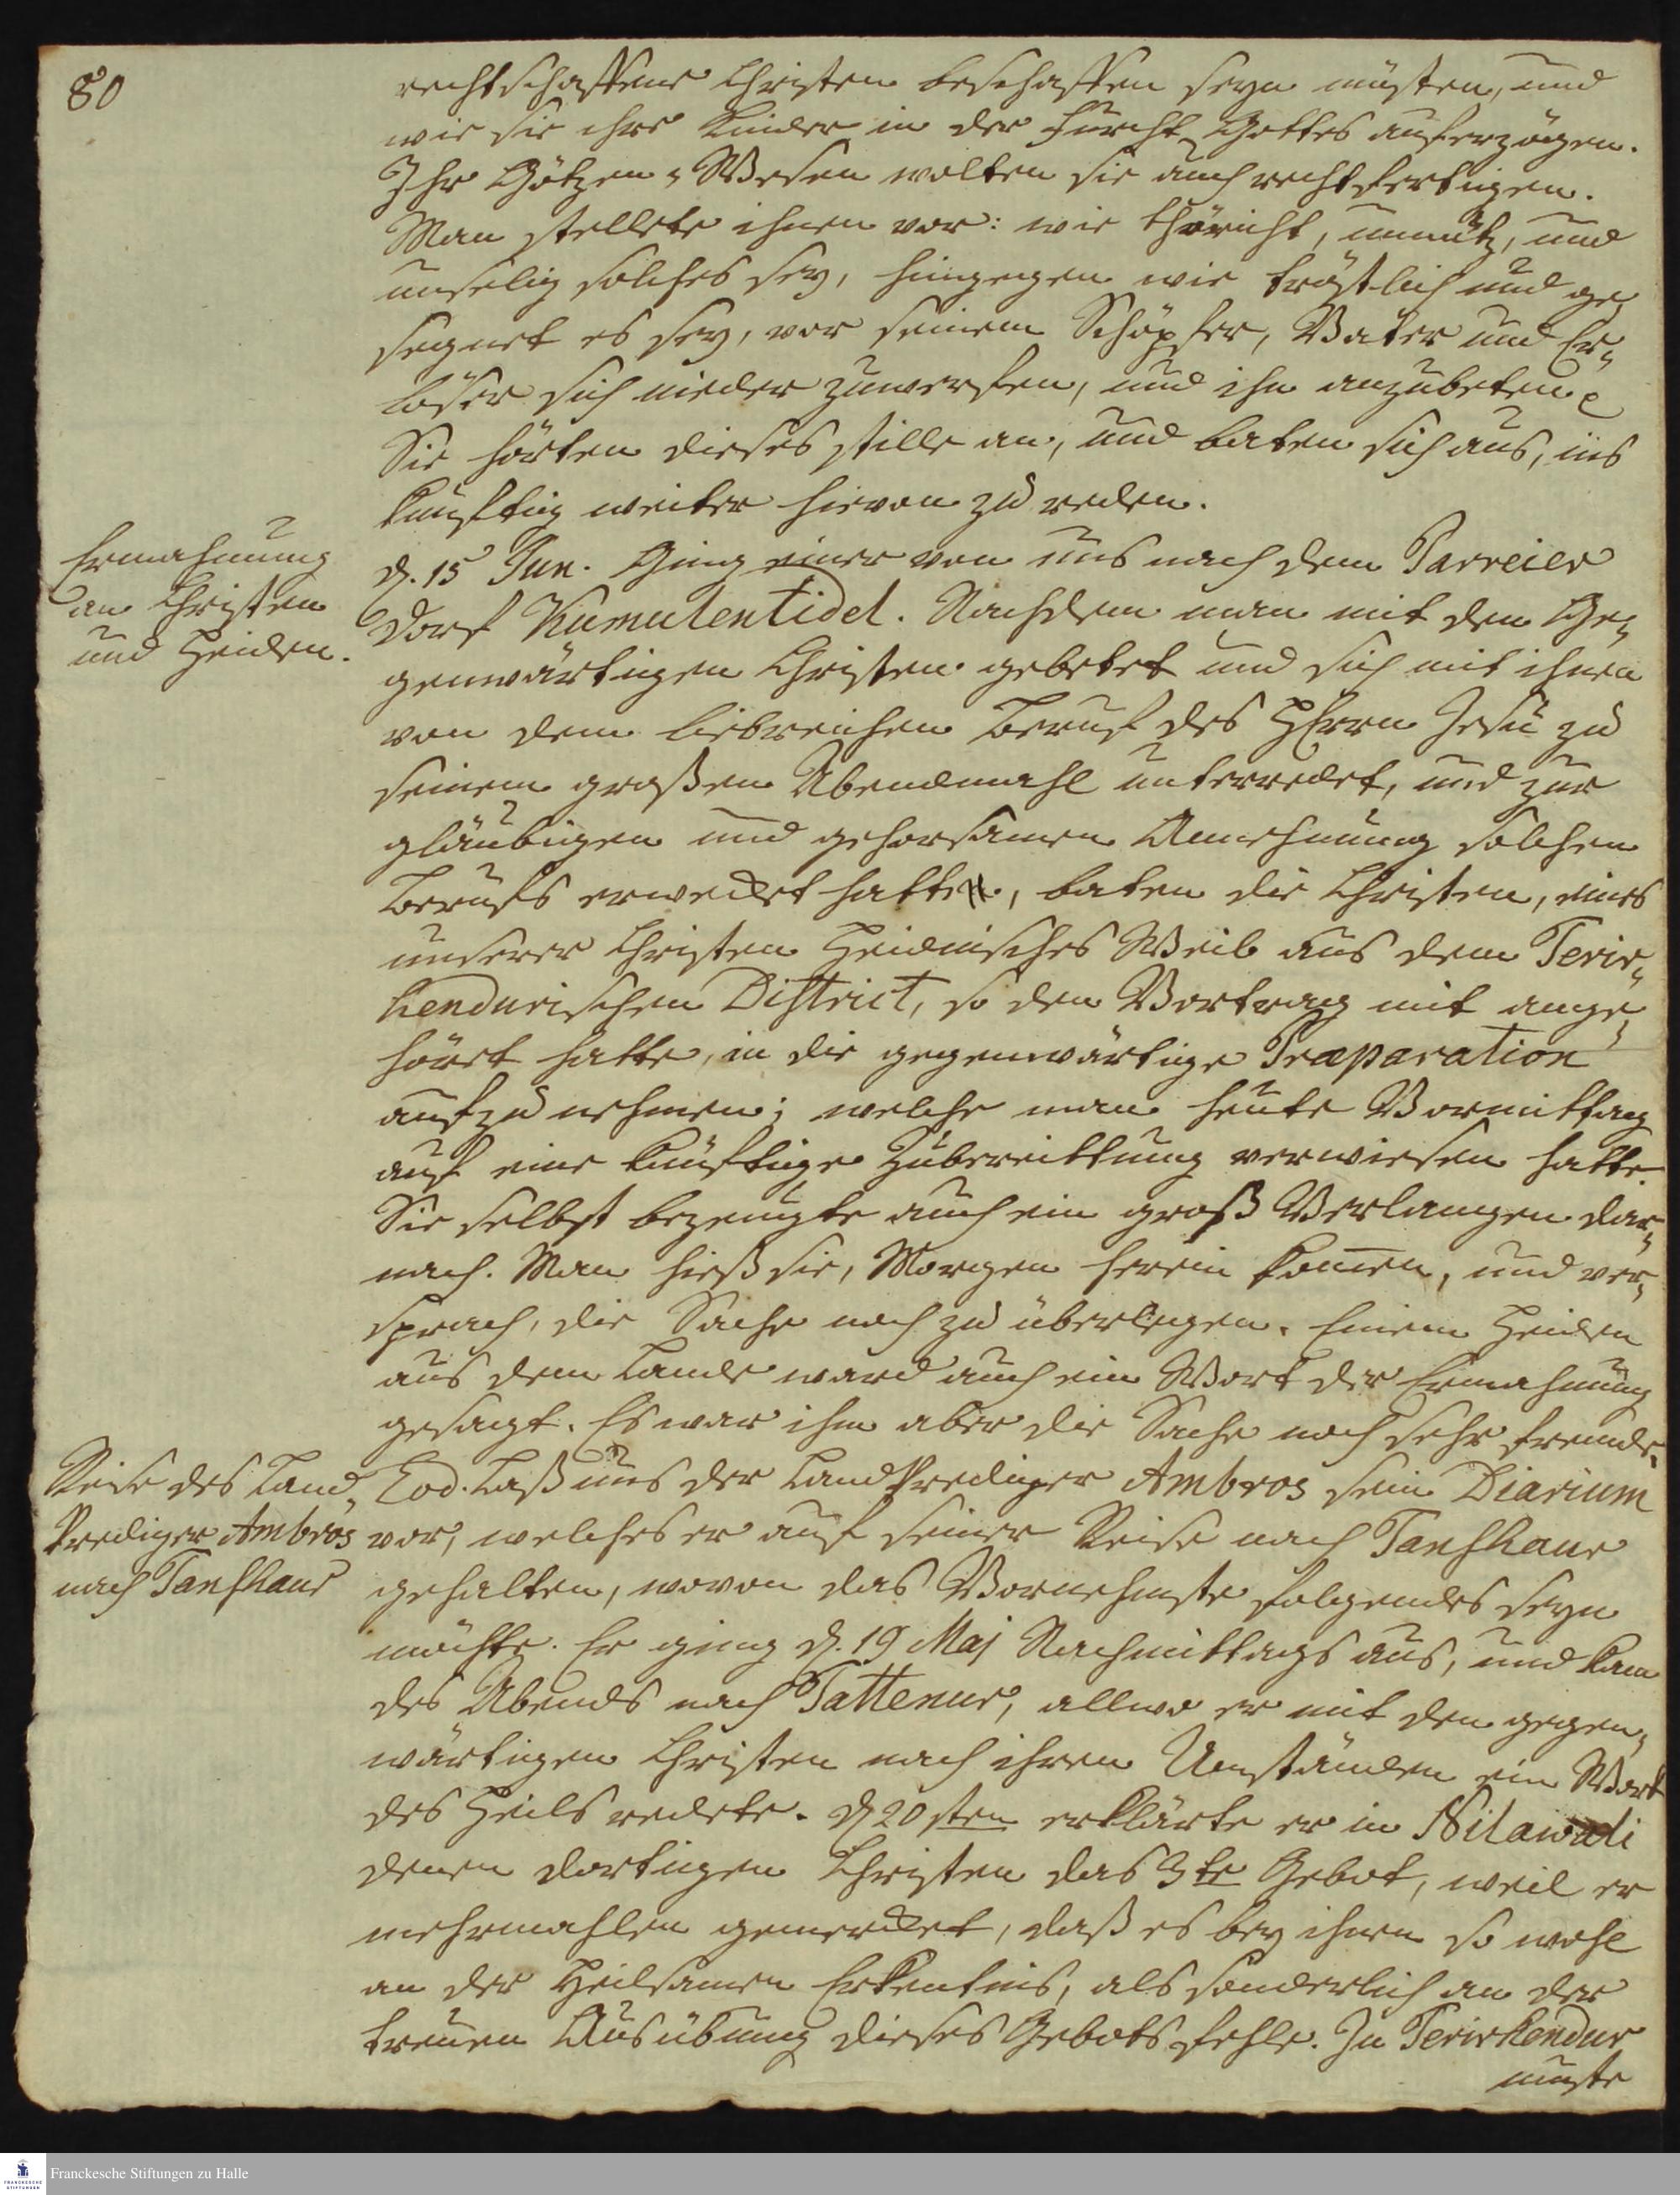 80
rechtschaffene Christen beschaffen seyn müsten, und
wie sie ihre Kinder in der Furcht Gottes auferzögen.
Ihr Götzen-Wesen wolten sie auch rechtfertigen.
Man stellete ihnen vor: wie thöricht, unnütz, und
unselig solches sey, hingegen wie tröstlich und ge-
segnet es sey, vor seinem Schöpfer, Vater und Er-
löser sich nieder zuwerfen, und ihn anzubeten
Sie hörten dieses stille an, und baten sich aus, ins
künftig weiter hievon zu reden.
Ermahnung
an Christen
und Heiden.
d. 15 Jun. Ging einer von uns nach dem Parreier
Dorf Kumulentidel. Nachdem man mit den Ge-
genwärtigen Christen gebetet und sich mit ihnen
von dem liebreichen Beruf des HErrn Jesu zu
seinem großen Abendmahl unterredet, und zur
gläubigen und gehorsamen Annehmung solchen
Berufs erwecket hatte, baten die Christen, eines
unserer Christen Heidnisches Weib aus dem Terir-
kendurischen District, so den Vortrag mit ange-
höret hatte, in die gegenwärtige Præparation
aufzunehmen; welche man heute Vormittag
auf eine künftige Zubereittung verwiesen hatte.
Sie selbst bezeugte auch ein groß Verlangen dar-
nach. Man hieß sie, Morgen herein kom̄en, und ver-
sprach, die Sache noch zu überlegen. Einem Heiden
aus dem Lande ward auch ein Wort der Ermahnung
gesagt. Es war ihm aber die Sache noch sehr fremde.
Reise des Land-
Prediger Ambros
nach Tanshaur
Eod. Laß uns der LandPrediger Ambros sein Diarium
vor, welches er auf seiner Reise nach Tanshaur
gehalten, wovon das Vornehmste folgendes seyn
möchte. Er ging d. 19 Maj Nachmittags aus, und kam
des Abends nach Tattenur, allwo er mit den gegen-
wärtigen Christen nach ihren Umständen ein Wort
des Heils redete. d 20sten erklärte er in Nilawali
denen dortigen Christen das 3te Gebot, weil er
mehrmahlen gemercket, daß es bey ihnen so wohl
an der Heilsamen Erkentnis, als sonderlich an der
treuen Ausübung dieses Gebots fehle. In Terirkendur
muste
Franckesche Stiftungen zu Halle
FRANCKESCHE
STIFTUNGEN